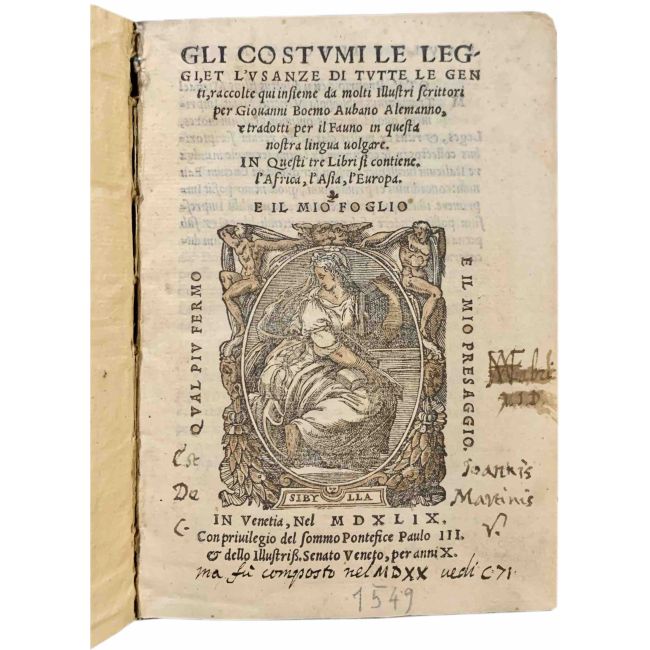 GLI COSTVMI LE LEG-
GI, ET L'VSANZE DI TVTTE LE GEN
ti, raccolte qui insieme da molti Illustri scrittori
per Giouanni Boemo Aubano Alemanno,
e tradotti per il Fauno in questa
nostra lingua uolgare.
IN Questi tre Libri si contiene.
l'Africa, l'Asia, l'Europa.
E IL MIO FOGLIO
QVAL PIV FERMO
E IL MIO PRESAGGIO.
Est
De
C.
Joannis
Martinis
V.
SIBYLLA
IN Venetia, Nel MDXLIX.
Con priuilegio del sommo Pontefice Paulo III.
& dello Illustriß. Senato Veneto, per anni X.
ma fù composto nel MDXX uedi C. 71.
1549